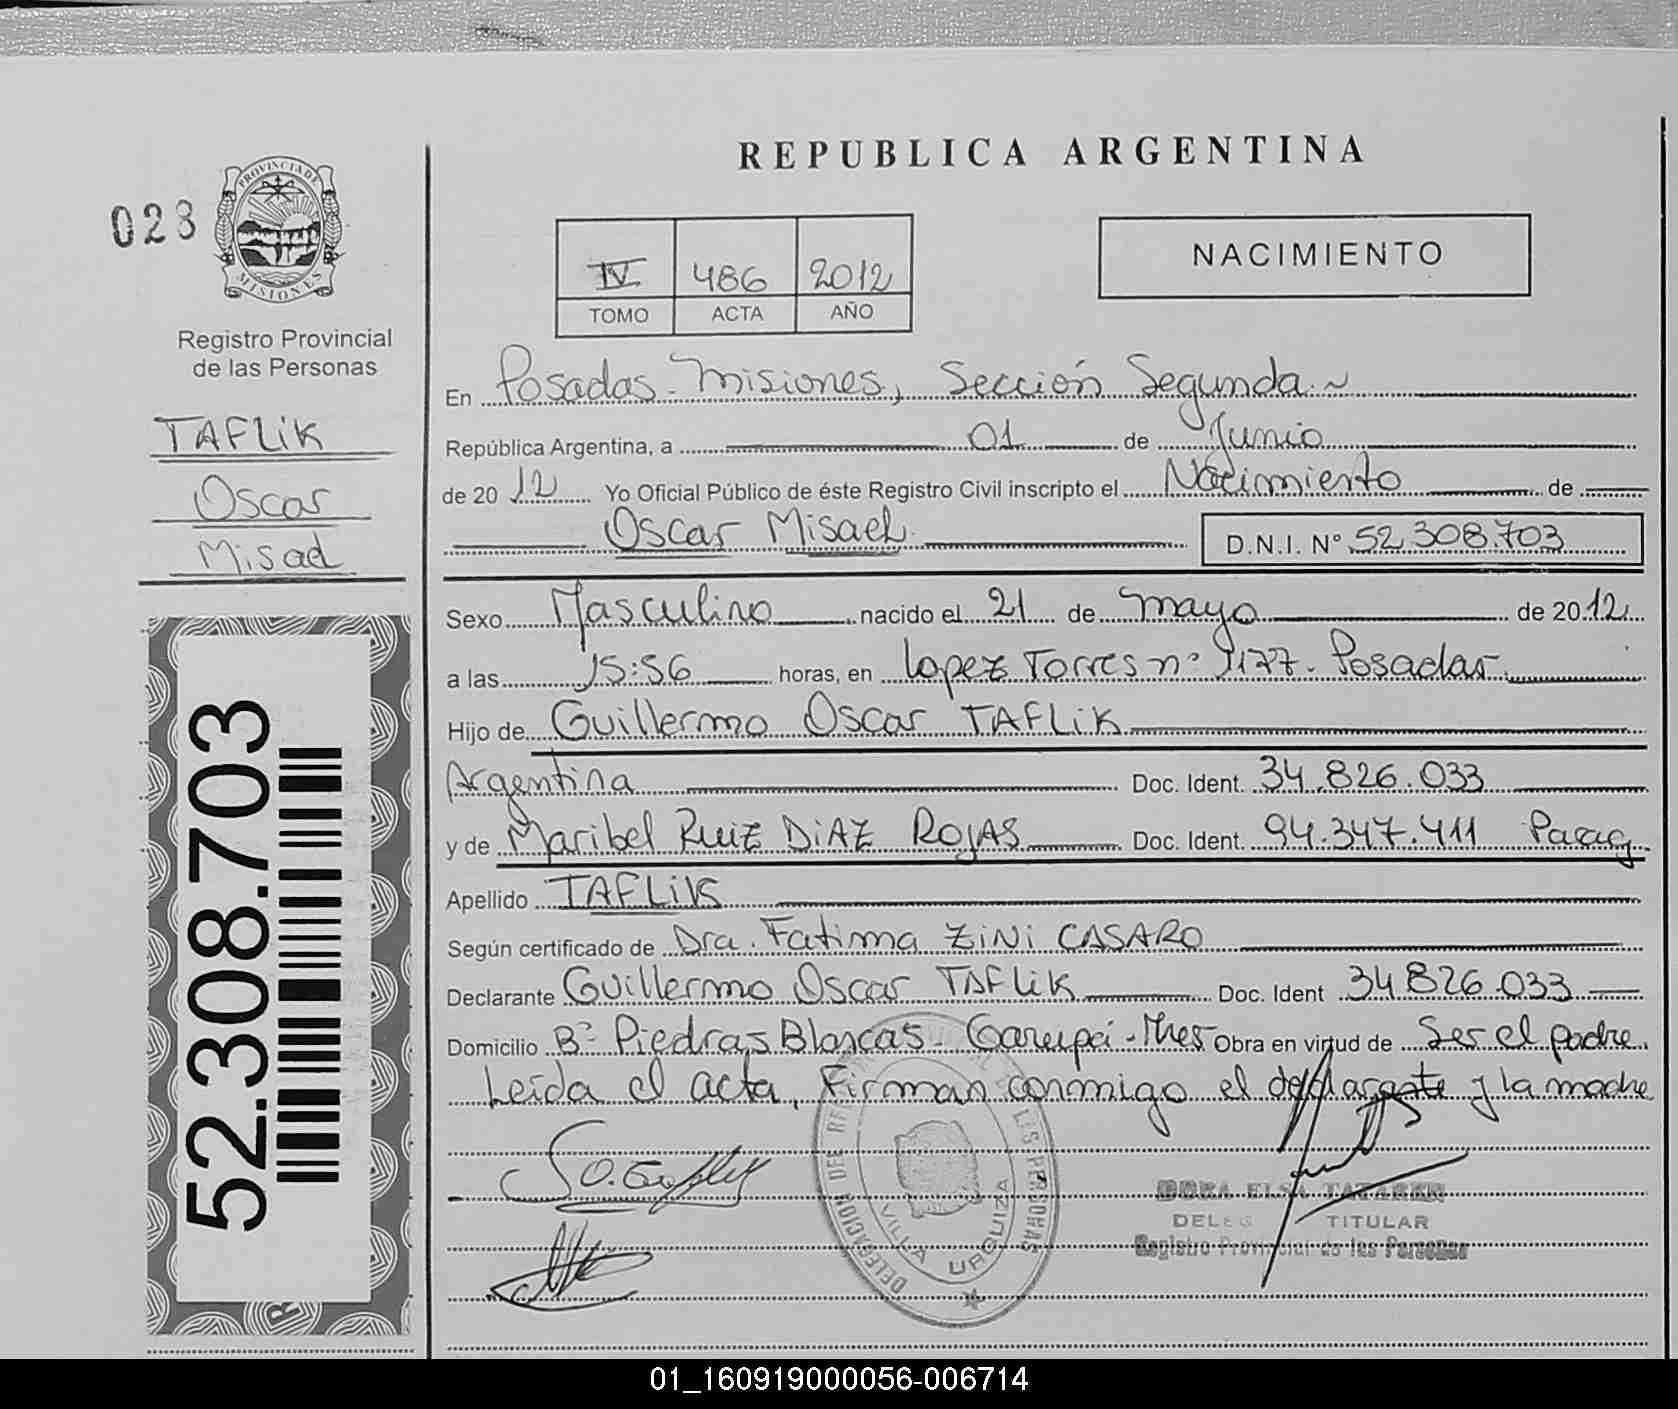 REPUBLICA ARGENTINA
028
PROVINCIA DE
MISIONES
Registro Provincial
de las Personas
TAFLIK
Oscar
Misael
52.308.703
IV 486 2012
TOMO ACTA AÑO
NACIMIENTO
En Posadas - Misiones, Sección Segunda.~
República Argentina, a 01 de Junio
de 2012 Yo Oficial Público de éste Registro Civil inscripto el Nacimiento de
Oscar Misael D.N.I. N° 52.308.703
Sexo Masculino nacido el 21 de mayo de 2012
a las 15:56 horas, en Lopez Torres n° 1177 - Posadas
Hijo de Guillermo Oscar TAFLIK
Argentina Doc. Ident. 34.826.033
y de Maribel Ruiz DIAZ ROJAS Doc. Ident. 94.347.411 Parag
Apellido TAFLIK
Según certificado de Dra. Fatima ZINI CASARO
Declarante Guillermo Oscar TAFLIK Doc. Ident 34.826.033
Domicilio B° Piedras Blancas - Garupá - Mnes Obra en virtud de Ser el padre.
Leída el acta, Firman conmigo el declarante y la madre
DELEGACION DEL REGISTRO PROVINCIAL DE LAS PERSONAS
VILLA URQUIZA
DORA ELSA
DELEG TITULAR
Registro Provincial de las Personas
01_160919000056-006714